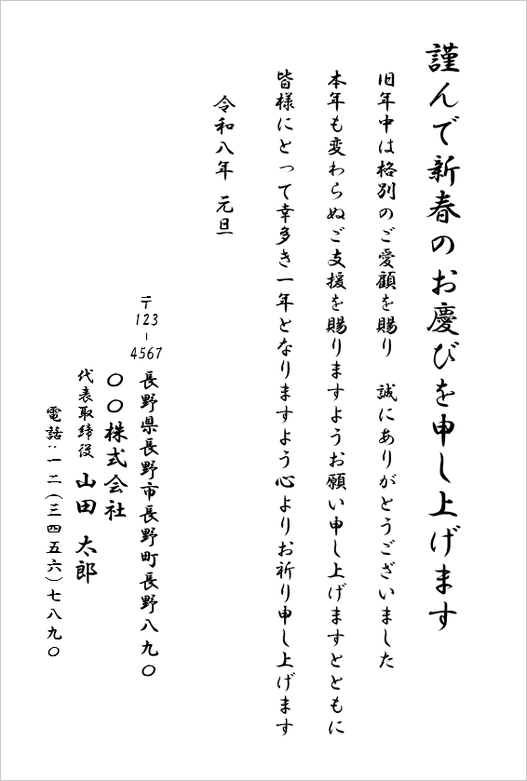 謹んで新春のお慶びを申し上げます
旧年中は格別のご愛顧を賜り　誠にありがとうございました
本年も変わらぬご支援を賜りますようお願い申し上げますとともに
皆様にとって幸多き一年となりますよう心よりお祈り申し上げます
令和八年　元旦
〒123-4567
長野県長野市長野町長野八九〇
〇〇株式会社
代表取締役　山田　太郎
電話:一二(三四五六)七八九〇